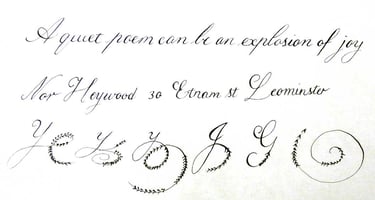 A quiet poem can be an explosion of joy
Nor Heywood 30 Etnam st Leominster
Y Y Y J G